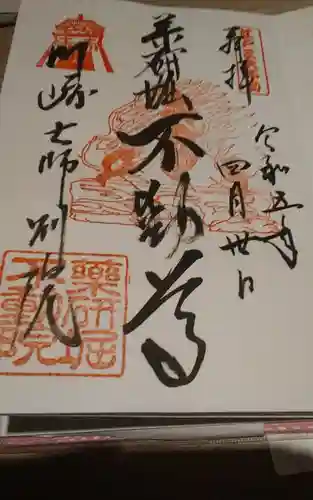 奉拝
令和五年
四月廿日
薬研堀不動尊
川崎大師別院
薬研堀
不動院